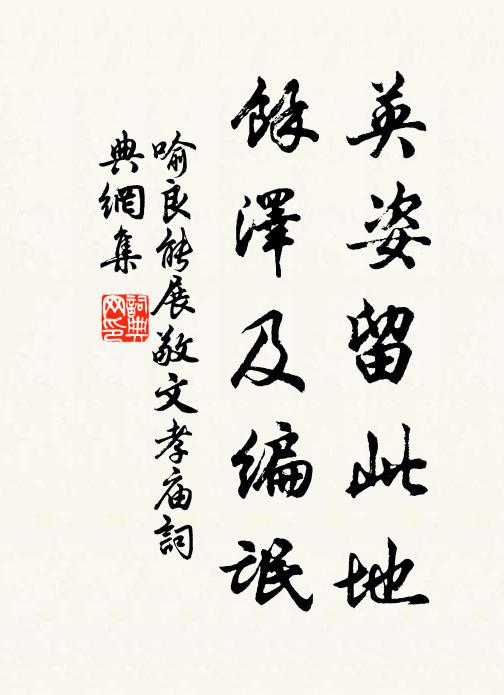 英姿留此地
餘澤及編氓
喻良能展敬文孝庙詞
典網集
詞典
网印